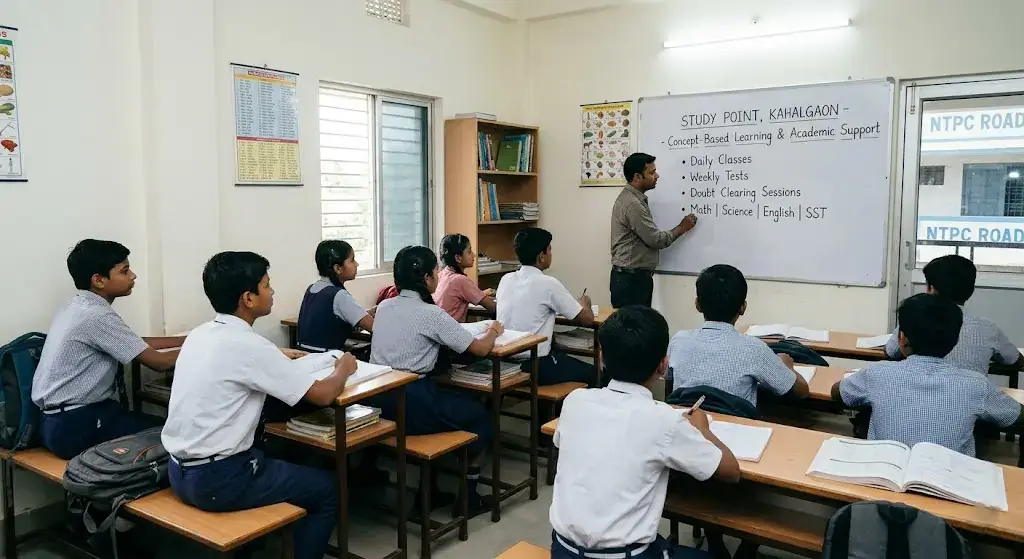 STUDY POINT, KAHALGAON -
- Concept-Based Learning & Academic Support
• Daily Classes
• Weekly Tests
• Doubt Clearing Sessions
• Math | Science | English | SST
NTPC ROAD
NTPC ROAD